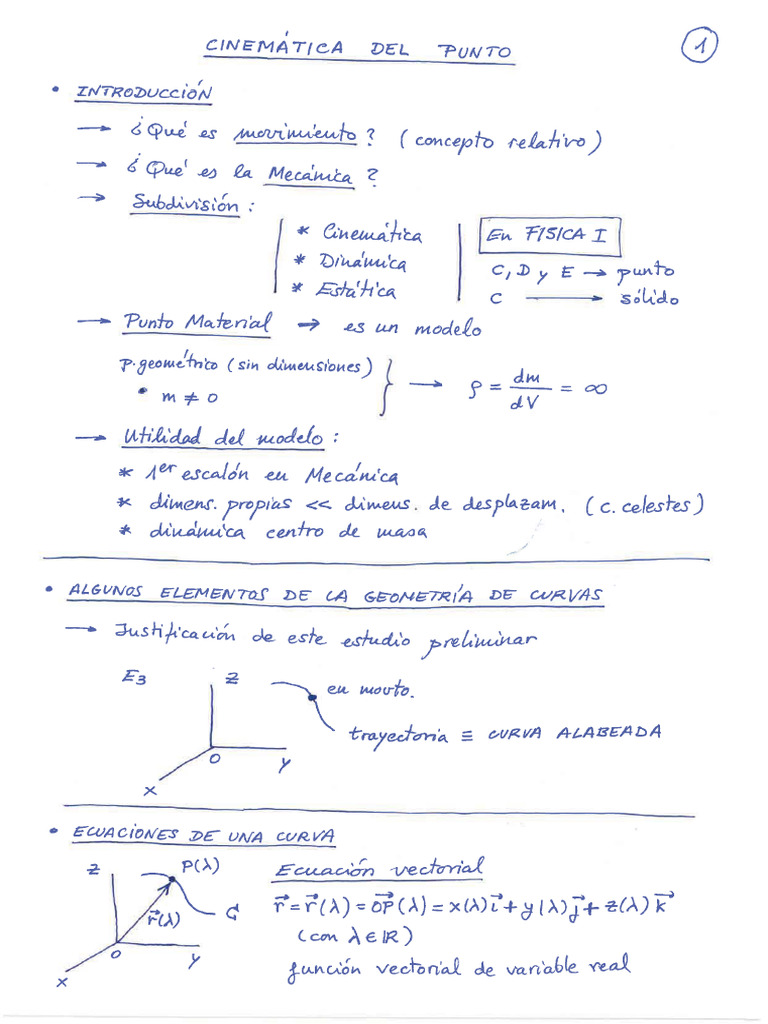 CINEMÁTICA DEL PUNTO
1
• INTRODUCCIÓN
→ ¿Qué es movimiento? (concepto relativo)
→ ¿Qué es la Mecánica?
→ Subdivisión:
* Cinemática
* Dinámica
* Estática
En FISICA I
C, D y E → punto
C → sólido
→ Punto Material → es un modelo
p. geométrico (sin dimensiones)
• m ≠ 0
→ ρ = dm/dV = ∞
→ Utilidad del modelo:
* 1er escalón en Mecánica
* dimens. propias << dimens. de desplazam. (c. celestes)
* dinámica centro de masa
• ALGUNOS ELEMENTOS DE LA GEOMETRÍA DE CURVAS
→ Justificación de este estudio preliminar
E3
Z
en movto.
trayectoria ≡ CURVA ALABEADA
O
Y
X
• ECUACIONES DE UNA CURVA
Z
P(λ)
r⃗(λ)
C
O
Y
X
Ecuación vectorial
r⃗ = r⃗(λ) = OP⃗(λ) = x(λ)i⃗ + y(λ)j⃗ + z(λ)k⃗
(con λ ∈ ℝ)
función vectorial de variable real